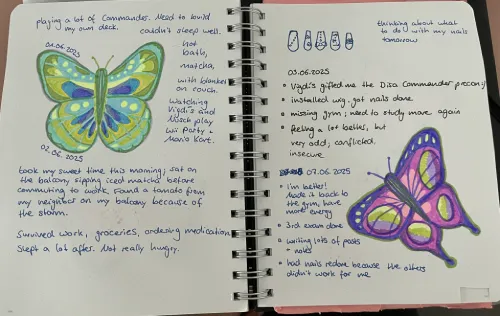 playing a lot of Commander. Need to build
my own deck.
couldn't sleep well.
hot
bath,
matcha,
with blanket
on couch.
Watching
Vigdis and
Nosch play
Wii Party +
Mario Kart.
01.06.2025
02.06.2025
took my sweet time this morning; sat on
the balcony sipping iced matcha before
commuting to work. Found a tomato from
my neighbor on my balcony because of
the storm.
Survived work, groceries, ordering medication.
Slept a lot after. Not really hungry.
thinking about what
to do with my nails
tomorrow
03.06.2025
Vigdis gifted me the Disa Commander precon :)
installed wig, got nails done
missing gym; need to study more again
feeling a lot better, but
very odd; conflicted,
insecure
07.06.2025
i'm better!
Made it back to
the gym, have
more energy
3rd exam done
writing lots of posts
+ notes
had nails redone because the others
didn't work for me